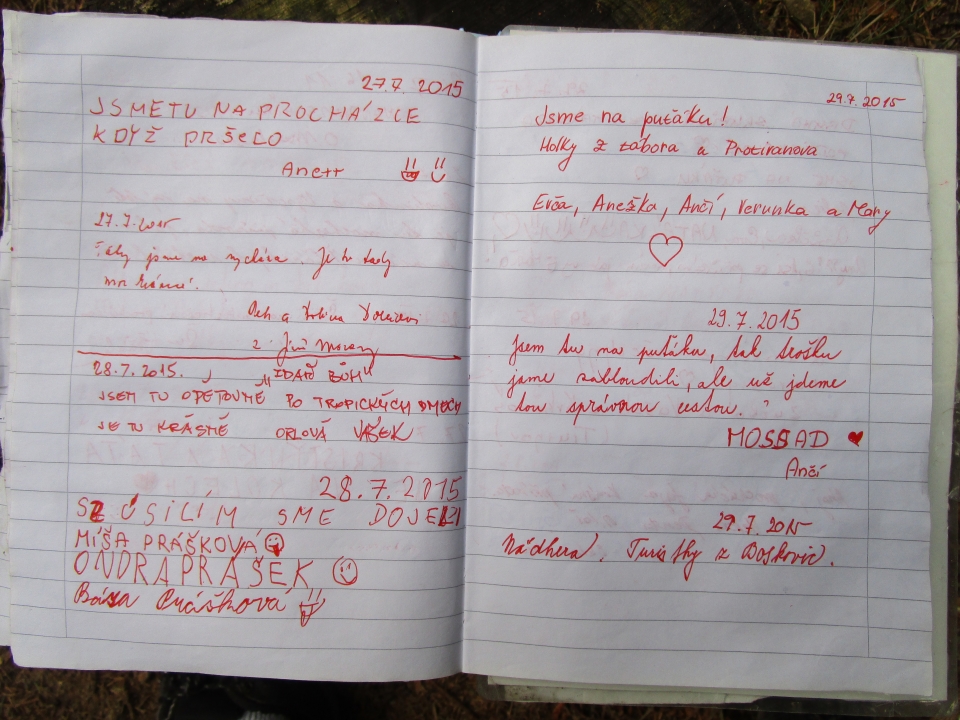 27.7. 2015
JSMETU NA PROCHÁZCE
KDYŽ PRŠELO
Anett
27.7.2015
jsme na výletu. Je to tady
a
z Jiří Moravy
28.7.2015. "ZDAŘ BŮH"
JSEM TU OPĚTOVNĚ PO TROPICKÝCH DNECH
JE TU KRÁSNĚ ORLOVÁ VAŠEK
28.7.2015
SZ ÚSILÍM SME DOJELI
MÍŠA PRÁŠKOVÁ
ONDRAPRÁŠEK
Bára Prášková
29.7.2015
Jsme na puťáku!
Holky z tábora a Protivanova
Evča, Anežka, Ančí, Verunka a Mary
29.7.2015
Jsem tu na puťáku, tak trošku
jsme zabloudili, ale už jdeme
tou správnou cestou.
MOSSAD
Ančí
29.7.2015
Nádhera. Turisthy z Boskovic.